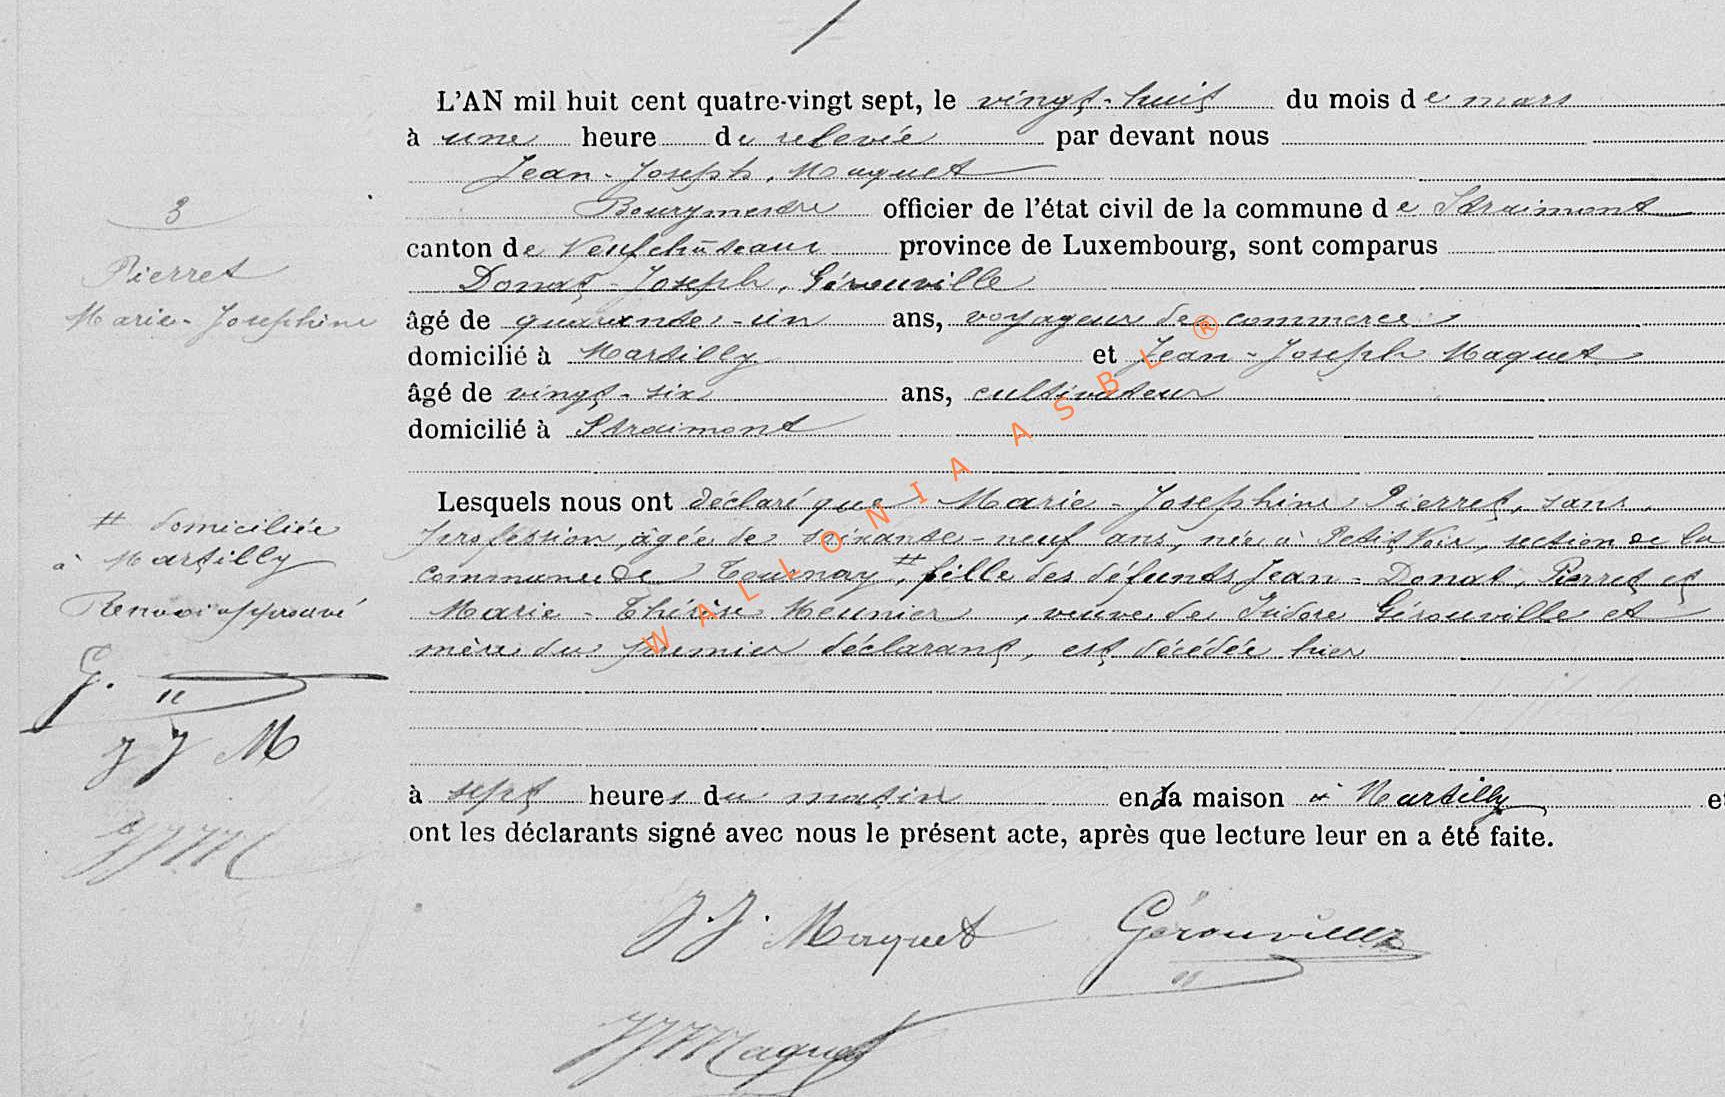 L'AN mil huit cent quatre-vingt sept, le vingt-huit du mois de mars
à une heure de relevée par devant nous
Jean-Joseph, Maquet
Bourgmestre officier de l'état civil de la commune de Straimont
canton de Neufchâteau province de Luxembourg, sont comparus
Donat-Joseph, Gérouville
âgé de quarante-un ans, voyageur de commerce
domicilié à Martilly et Jean-Joseph Maquet
âgé de vingt-six ans, cultivateur
domicilié à Straimont
Lesquels nous ont déclaré que Marie-Josephine Pierret, sans
profession, âgée de soixante-neuf ans, née à Petit Voir, section de la
commune de Tournay #, fille des défunts Jean-Donat, Pierret et
Marie-Thérèse Meunier, veuve de Isidore Gérouville et
mère du premier déclarant, est décédée hier
à sept heures du matin en sa maison à Martilly, et
ont les déclarants signé avec nous le présent acte, après que lecture leur en a été faite.
J.J. Maquet Gérouville
JJ Maquet
3
Pierret
Marie-Josephine
# domiciliée
à Martilly
Renvoi approuvé
G.
J J M
JJM
WALLONIA ASBL ®